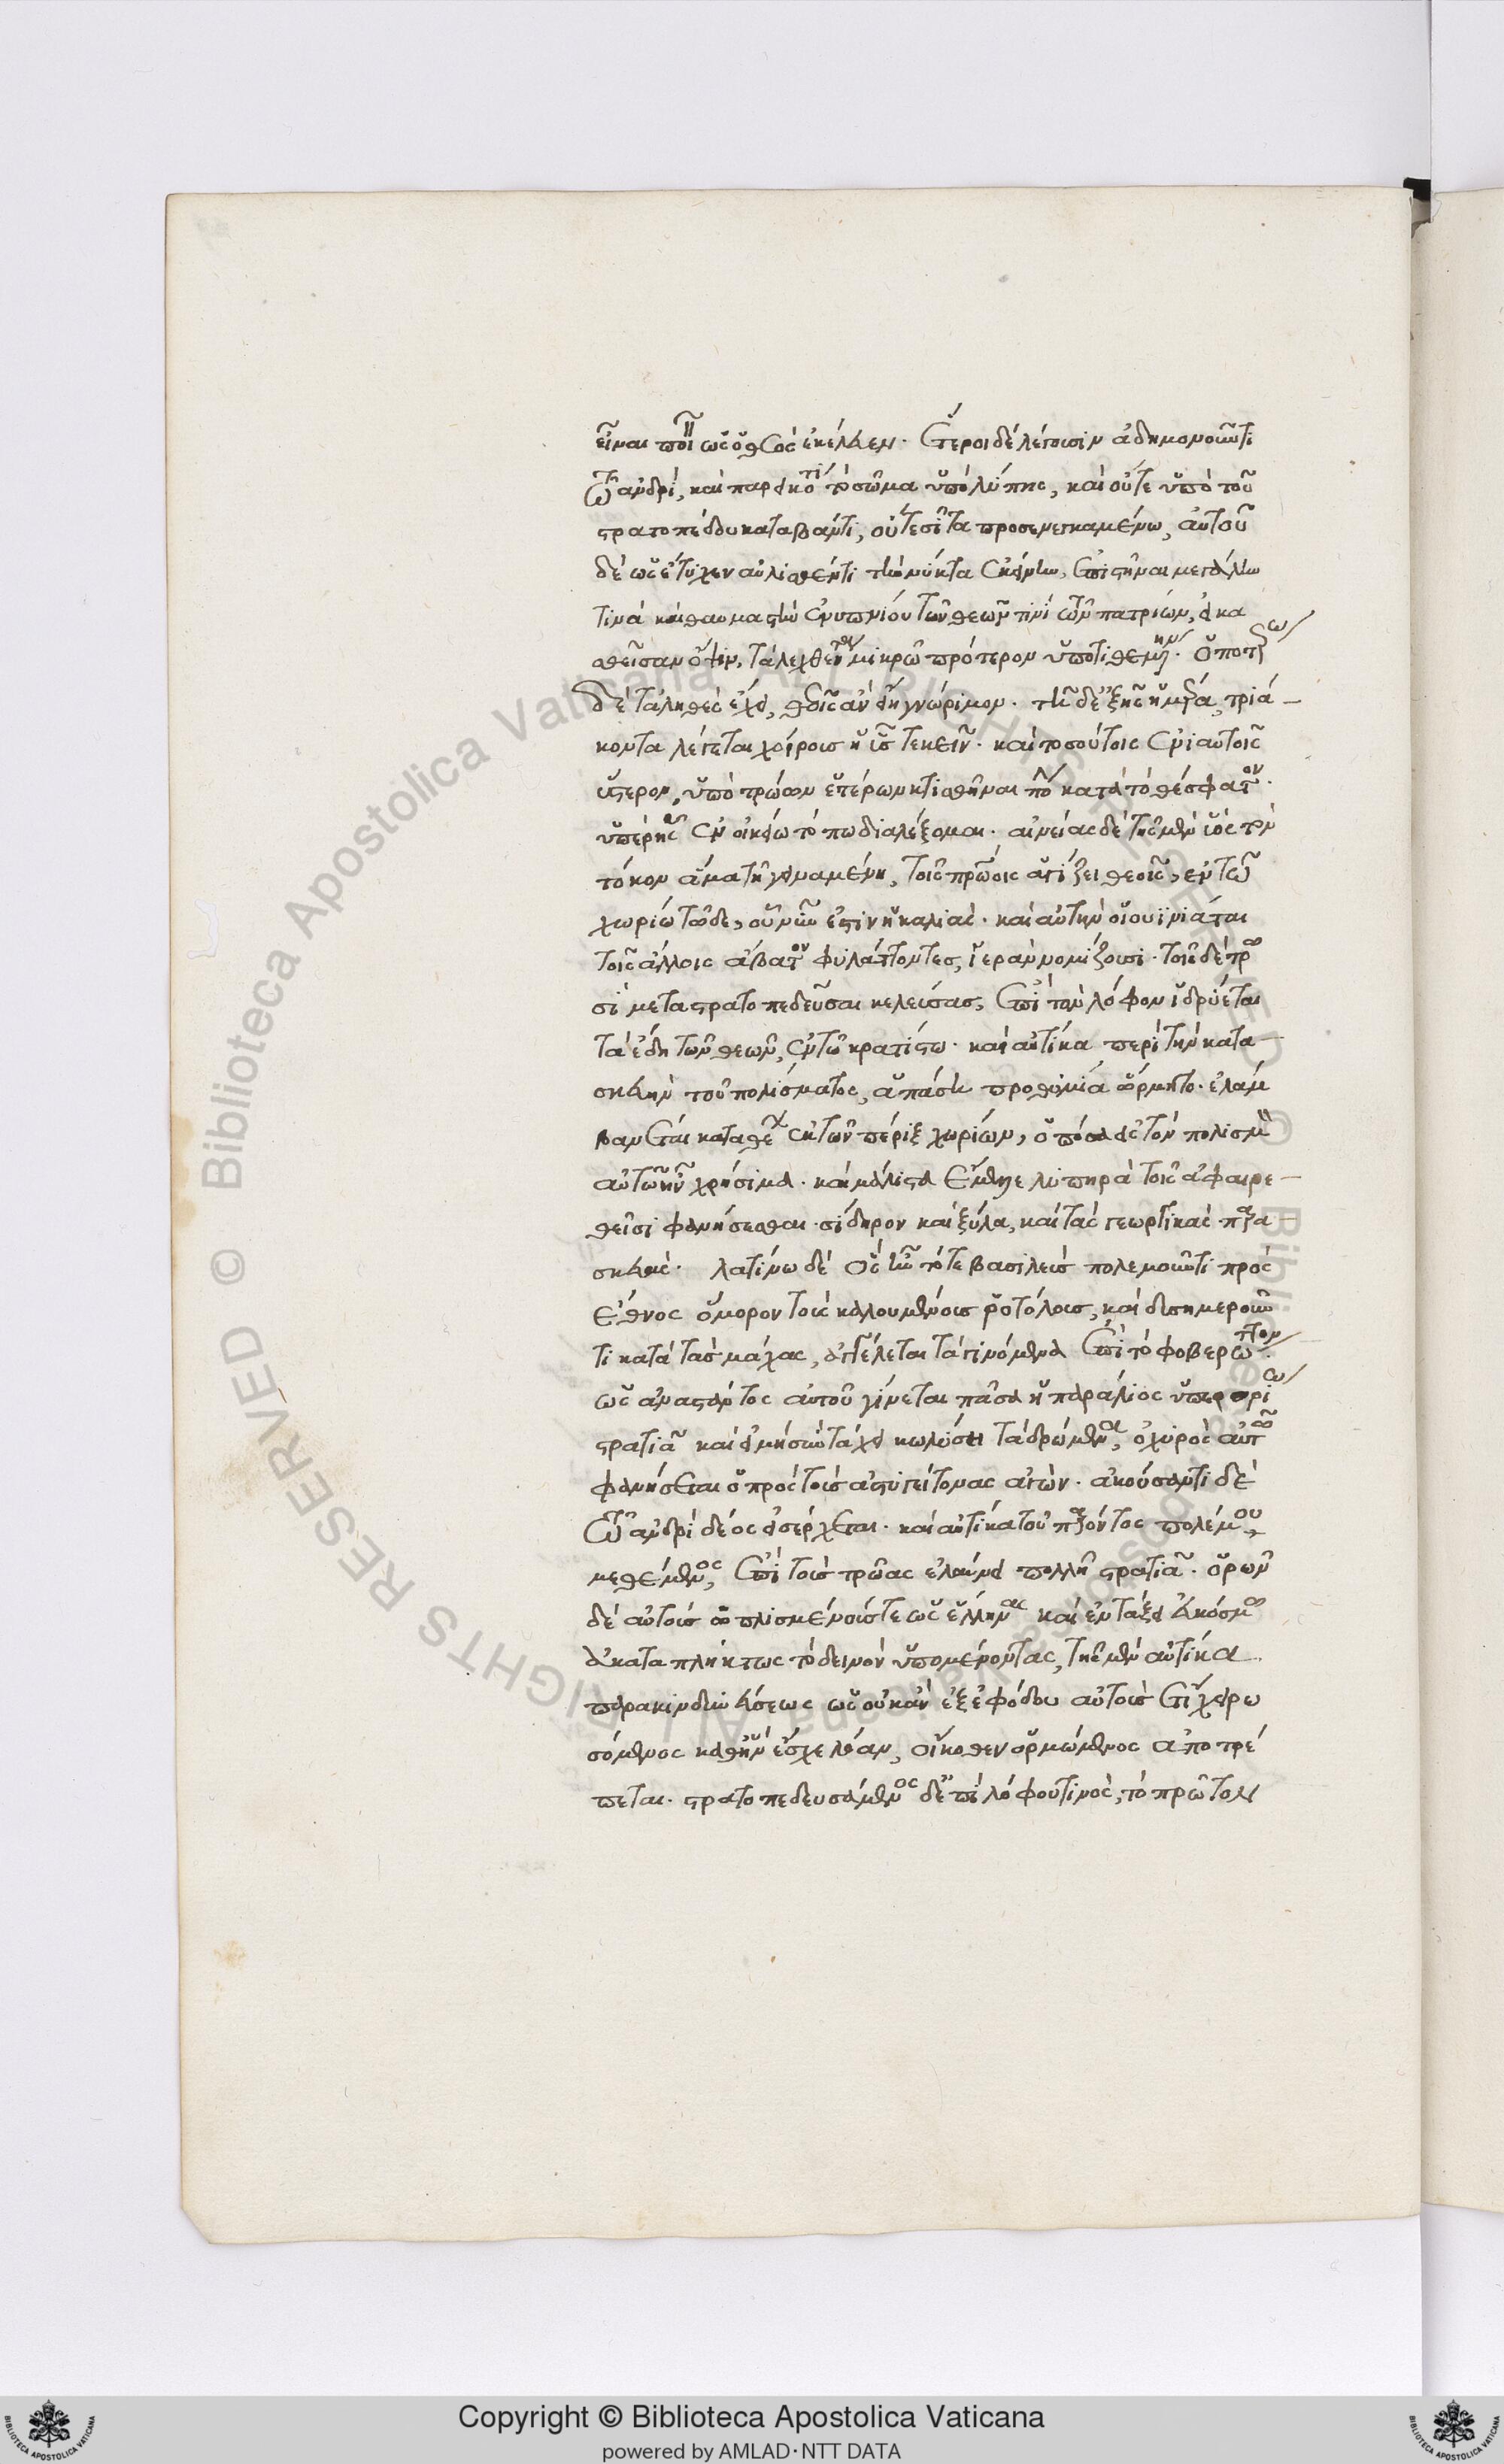 εἶναι ποιεῖν ὡς ὁ θεὸς ἐκέλευεν. ἕτεροι δὲ λέγουσιν ἀδημονοῦντι
τῷ ἀνδρὶ, καὶ παρεικότι τὸ σῶμα ὑπὸ λύπης, καὶ οὔτε ὑπὸ τοῦ
στρατοπέδου καταβάντι, οὔτε σῖτα προσενεγκαμένω, αὐτοῦ
δὲ ὡς ἔτυχεν αὐλισθέντι τὴν νύκτα ἐκείνην, ἐπιστῆναι μεγάλην
τινὰ καὶ θαυμαστὴν ἐνυπνίου τῶν θεῶν τινὶ τῶν πατρίων, εἰκα
σθεῖσαν ὄψιν, τὰ λεχθέντα μικρῶ πρότερον ὑποτιθεμένην. ὁποτέρως
δὲ τἀληθὲς ἔχει, θεοῖς ἂν εἴη γνώριμον. τῆ δ' ἑξῆς ἡμέρα, τριά-
κοντα λέγεται χοίρους ἡ ὗς τεκεῖν. καὶ τοσούτοις ἐνιαυτοῖς
ὕστερον, ὑπὸ τρώων ἑτέρων κτισθῆναι πόλιν κατὰ τὸ θέσφατον.
ὑπὲρ ἧς ἐν οἰκείω τόπω διαλέξομαι. αἰνείας δὲ τῆς μὲν ὑὸς τὸν
τόκον ἅμα τῆ γειναμένη, τοῖς πατρώοις ἁγίζει θεοῖς, ἐν τῶ
χωρίω τῶδε, οὗ νῦν ἐστιν ἡ καλιάς. καὶ αὐτὴν οἱ λουϊνιάται
τοῖς ἄλλοις ἄβατον φυλάττοντες, ἱερὰν νομίζουσι. τοῖς δὲ τρω
σὶ μεταστρατοπεδεῦσαι κελεύσας, ἐπὶ τὸν λόφον ἱδρύεται
τὰ ἕδη τῶν θεῶν, ἐν τῶ κρατίστω. καὶ αὐτίκα περὶ τὴν κατα-
σκευὴν τοῦ πολίσματος, ἁπάση προθυμία ὥρμητο. ἐλάμ
βανε καταθέων ἐκ τῶν πέριξ χωρίων, ὁπόσα εἰς τὸν πολισμὸν
αὐτῶ ἦν χρήσιμα. καὶ μάλιστα ἔμελλε λυπηρὰ τοῖς ἀφαιρε-
θεῖσι φανήσεσθαι. σίδηρον καὶ ξύλα, καὶ τὰς γεωργικὰς παρα-
σκευάς. λατίνω δὲ ὃς ἦν τότε βασιλεὺς πολεμοῦντι πρὸς
ἔθνος ὅμορον τοὺς καλουμένους ῥοτόλους, καὶ δυσημεροῦν
τι κατὰ τὰς μάχας, ἀγγέλλεται τὰ γινόμενα ἐπὶ τὸ φοβερώτατον.
ὡς ἀνάστατος αὐτοῦ γίνεται πᾶσα ἡ παράλιος ὑπερορίω
στρατιᾶ καὶ εἰ μὴ σὺν τάχει κωλύσει τὰ δρώμενα, χρυσὸς αὐτῶ
φανήσεται ὁ πρὸς τοὺς ἀστυγείτονας ἀγών. ἀκούσαντι δὲ
τῶ ἀνδρὶ δέος εἰσέρχεται. καὶ αὐτίκα τοῦ παρόντος πολέμου
μεθέμενος, ἐπὶ τοὺς τρῶας ἐλαύνει πολλῆ στρατιᾶ. ὁρῶν
δὲ αὐτοὺς ὡπλισμένους τε ὡς ἕλληνας καὶ ἐν τάξει εὐκόσμω
ἀκαταπλήκτως τὸ δεινὸν ὑπομένοντας, τῆς μὲν αὐτίκα
παρακινδυνεύσεως ὡς οὐκ ἂν ἐξ ἐφόδου αὐτοὺς ἔτι χειρω
σόμενος καθ' ἣν ἔσχε διάνοιαν, οἴκοθεν ὁρμώμενος ἀποτρέ
πεται. στρατοπεδευσάμενος δ' ἐπὶ λόφου τινὸς, τὸ πρῶτον
Copyright © Biblioteca Apostolica Vaticana
powered by AMLAD·NTT DATA